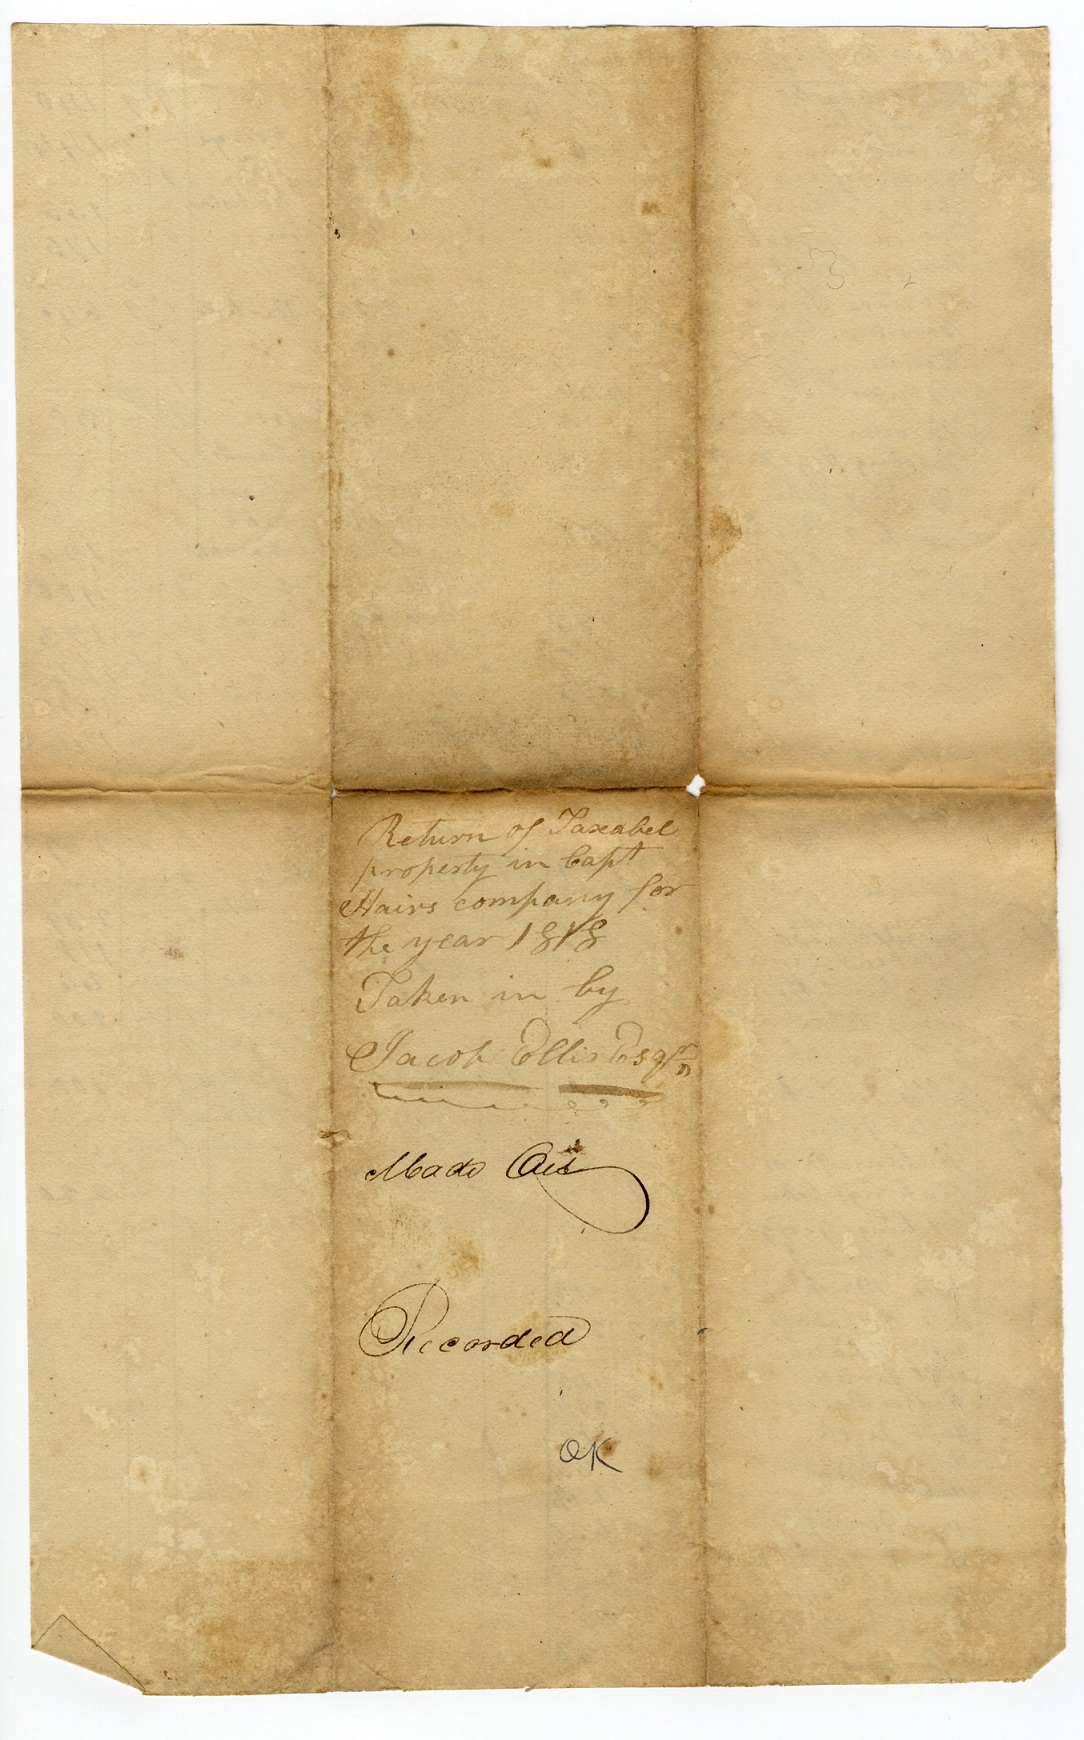 Return of Taxabel
property in Capt
Hairs company for
the year 1818
Taken in by
Jacob Ellis Esqr
Made Out
Recorded
OK